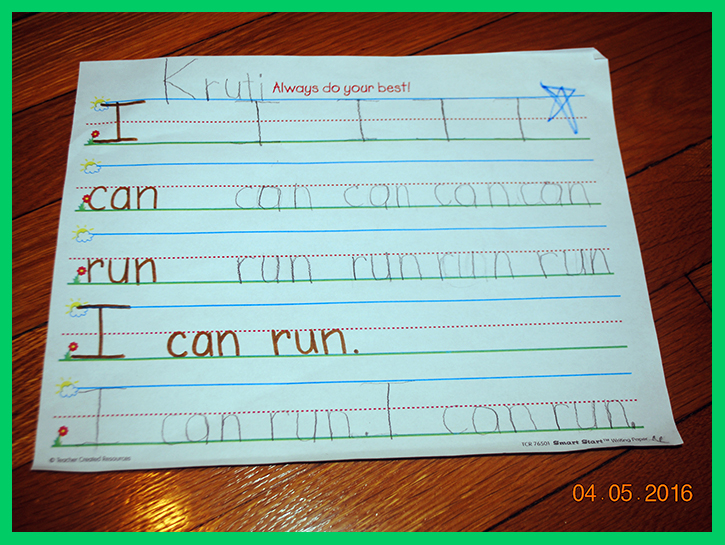 Kruti Always do your best!
I I I I I
can can can can can
run run run run run
I can run.
I can run. I can run.
© Teacher Created Resources TCR 76501 Smart Start™ Writing Paper
04.05.2016